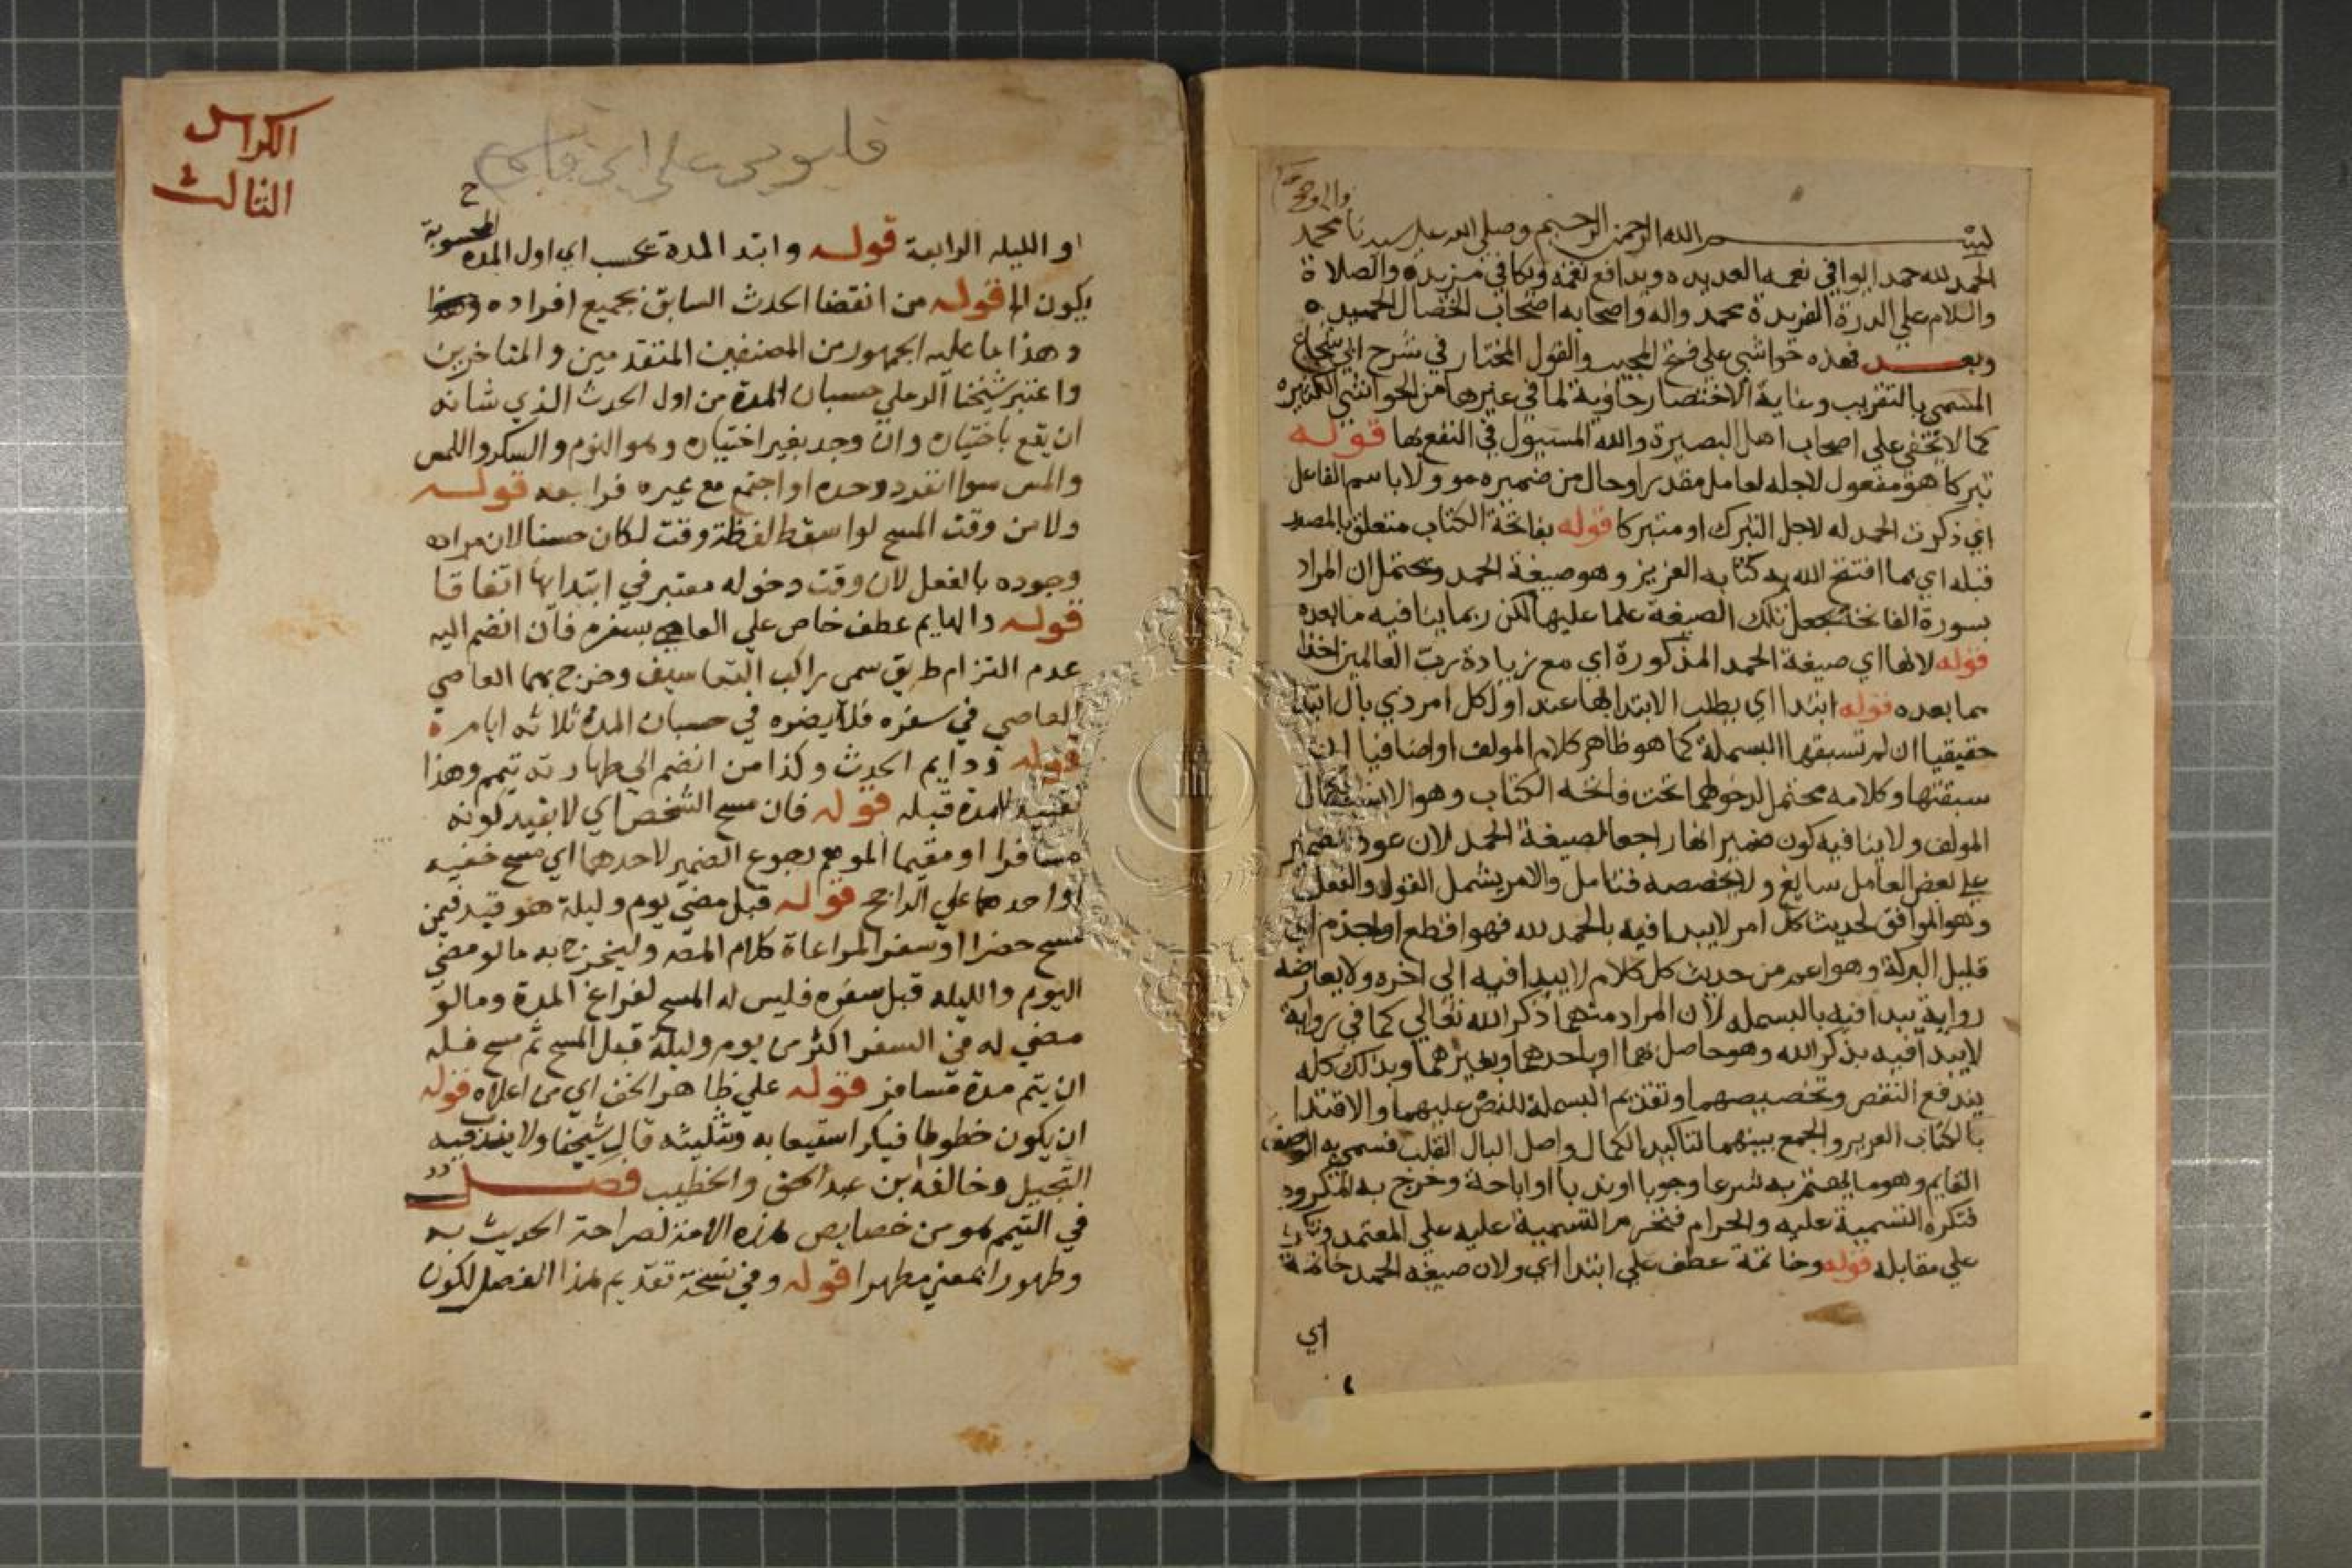 واله وصحبه
بسم الله الرحمن الرحيم وصلي الله علي سيدنا محمد
الحمد لله حمدا يوافي نعمه العديده ويدافع نقمه ويكافي مزيده والصلاة
والسلام علي الدرة الفريدة محمد واله واصحابه اصحاب الخصال الحميده
وبعد فهذه حواشي علي فتح المجيب والقول المختار في شرح ابي شجاع
المسمي بالتقريب وغاية الاختصار حاوية لما في غيرها من الحواشي الكثيره
كما لا تخفي علي اصحاب اهل البصيرة والله المسيول في النفع بها قوله
تبركا هو مفعول لاجله لعامل مقدر او حال من ضميره موولا باسم الفاعل
اي ذكرت الحمد له لاجل التبرك او متبركا قوله بفاتحة الكتاب متعلق بالمصدر
قبله اي بما افتتح الله به كتابه العزيز وهو صيغة الحمد ويحتمل ان المراد
بسورة الفاتحة بجعل تلك الصيغة علما عليها لكن ربما ينافيه ما بعده
قوله لانها اي صيغة الحمد المذكورة اي مع زيادة رب العالمين اخذا
مما بعده قوله ابتدا اي يطلب الابتدا بها عند اول كل امر ذي بال ابتدا
حقيقيا ان لم تسبقها البسملة كما هو ظاهر كلام المولف او اضافيا ان
سبقتها وكلامه محتمل لدخولهما تحت فاتحة الكتاب وهو الانسب بحال
المولف ولا ينافيه كون ضمير انها راجعا لصيغة الحمد لان عود الضمير
علي بعض العامل سايغ ولا يخصصه فتامل والامر يشمل القول والفعل
وهو الموافق لحديث كل امر لا يبدا فيه بالحمد لله فهو اقطع او اجذم اي
قليل البركة وهو اعم من حديث كل كلام لا يبدا فيه الي اخره ولا يعارضه
رواية يبدا فيه بالبسمله لان المراد منهما ذكر الله تعالي كما في رواية
لا يبدا فيه بذكر الله وهو حاصل بهما او باحدهما وبغيرهما وبذلك كله
يندفع النقص وتخصيصهما وتقديم البسملة للنص عليهما والاقتدا
بالكتاب العزيز والجمع بينهما لتاكيد الكمال واصل البال القلب فسمي به الوصف
القايم وهو ما يهتم به شرعا وجوبا او ندبا او اباحة وخرج به المكروه
فتكره التسمية عليه والحرام فتحرم التسمية عليه علي المعتمد وتكره
علي مقابله قوله وخاتمة عطف علي ابتدا اي ولان صيغة الحمد خاتمة
اي
١
الكراس
الثالث
قليوبي علي ابن قاسم
ح
المحسوبة
او الليله الرابعة قوله وابتد المدة تحسب اي اول المدة
يكون الي قوله من انقضا الحدث السابق بجميع افراده
وهذا ما عليه الجمهور من المصنفين المتقدمين والمتاخرين
واعتبر شيخنا الرملي حسبان المدة من اول الحدث الذي شانه
ان يقع باختياره وان وجد بغير اختياره وهو النوم والسكر واللمس
والمس سوا انفرد وحده او اجتمع مع غيره فراجعه قوله
ولا من وقت المسح لو اسقط لفظة وقت لكان حسنا لان مراده
وجوده بالفعل لان وقت دخوله معتبر في ابتدايها اتفاقا
قوله والهايم عطف خاص علي العاصي بسفره فان انضم اليه
عدم التزام طريق سمي راكب التعاسيف وخرج بهما العاصي
العاصي في سفره فلا يضره في حسبان المدة ثلاثه ايام
قوله ودايم الحدث وكذا من انضم الي طهارته تيمم وهذا
تقييد للمدة قبله قوله فان مسح الشخص اي لا بقيد كونه
مسافرا او مقيما الموهم رجوع الضمير لاحدهما اي مسح خفيه
او احدهما علي الراجح قوله قبل مضي يوم وليلة هو قيد فيمن
مسح حضرا او سفرا لمراعاة كلام المصه وليخرج به ما لو مضي
اليوم والليله قبل سفره فليس له المسح لفراغ المدة وما لو
مضي له في السفر اكثر من يوم وليلة قبل المسح ثم مسح فله
ان يتم مدة مسافر قوله علي ظاهر الخف اي من اعلاه قوله
ان يكون خطوطا فيكره استيعابه وتثليثه قال شيخنا ولا يندب فيه
التحجيل وخالفه ابن عبد الحق والخطيب فصل
في التيمم هو من خصايص هذه الامة لصراحة الحديث به
وطهورا بمعني مطهرا قوله وفي نسخة تقديم هذا الفصل لكون